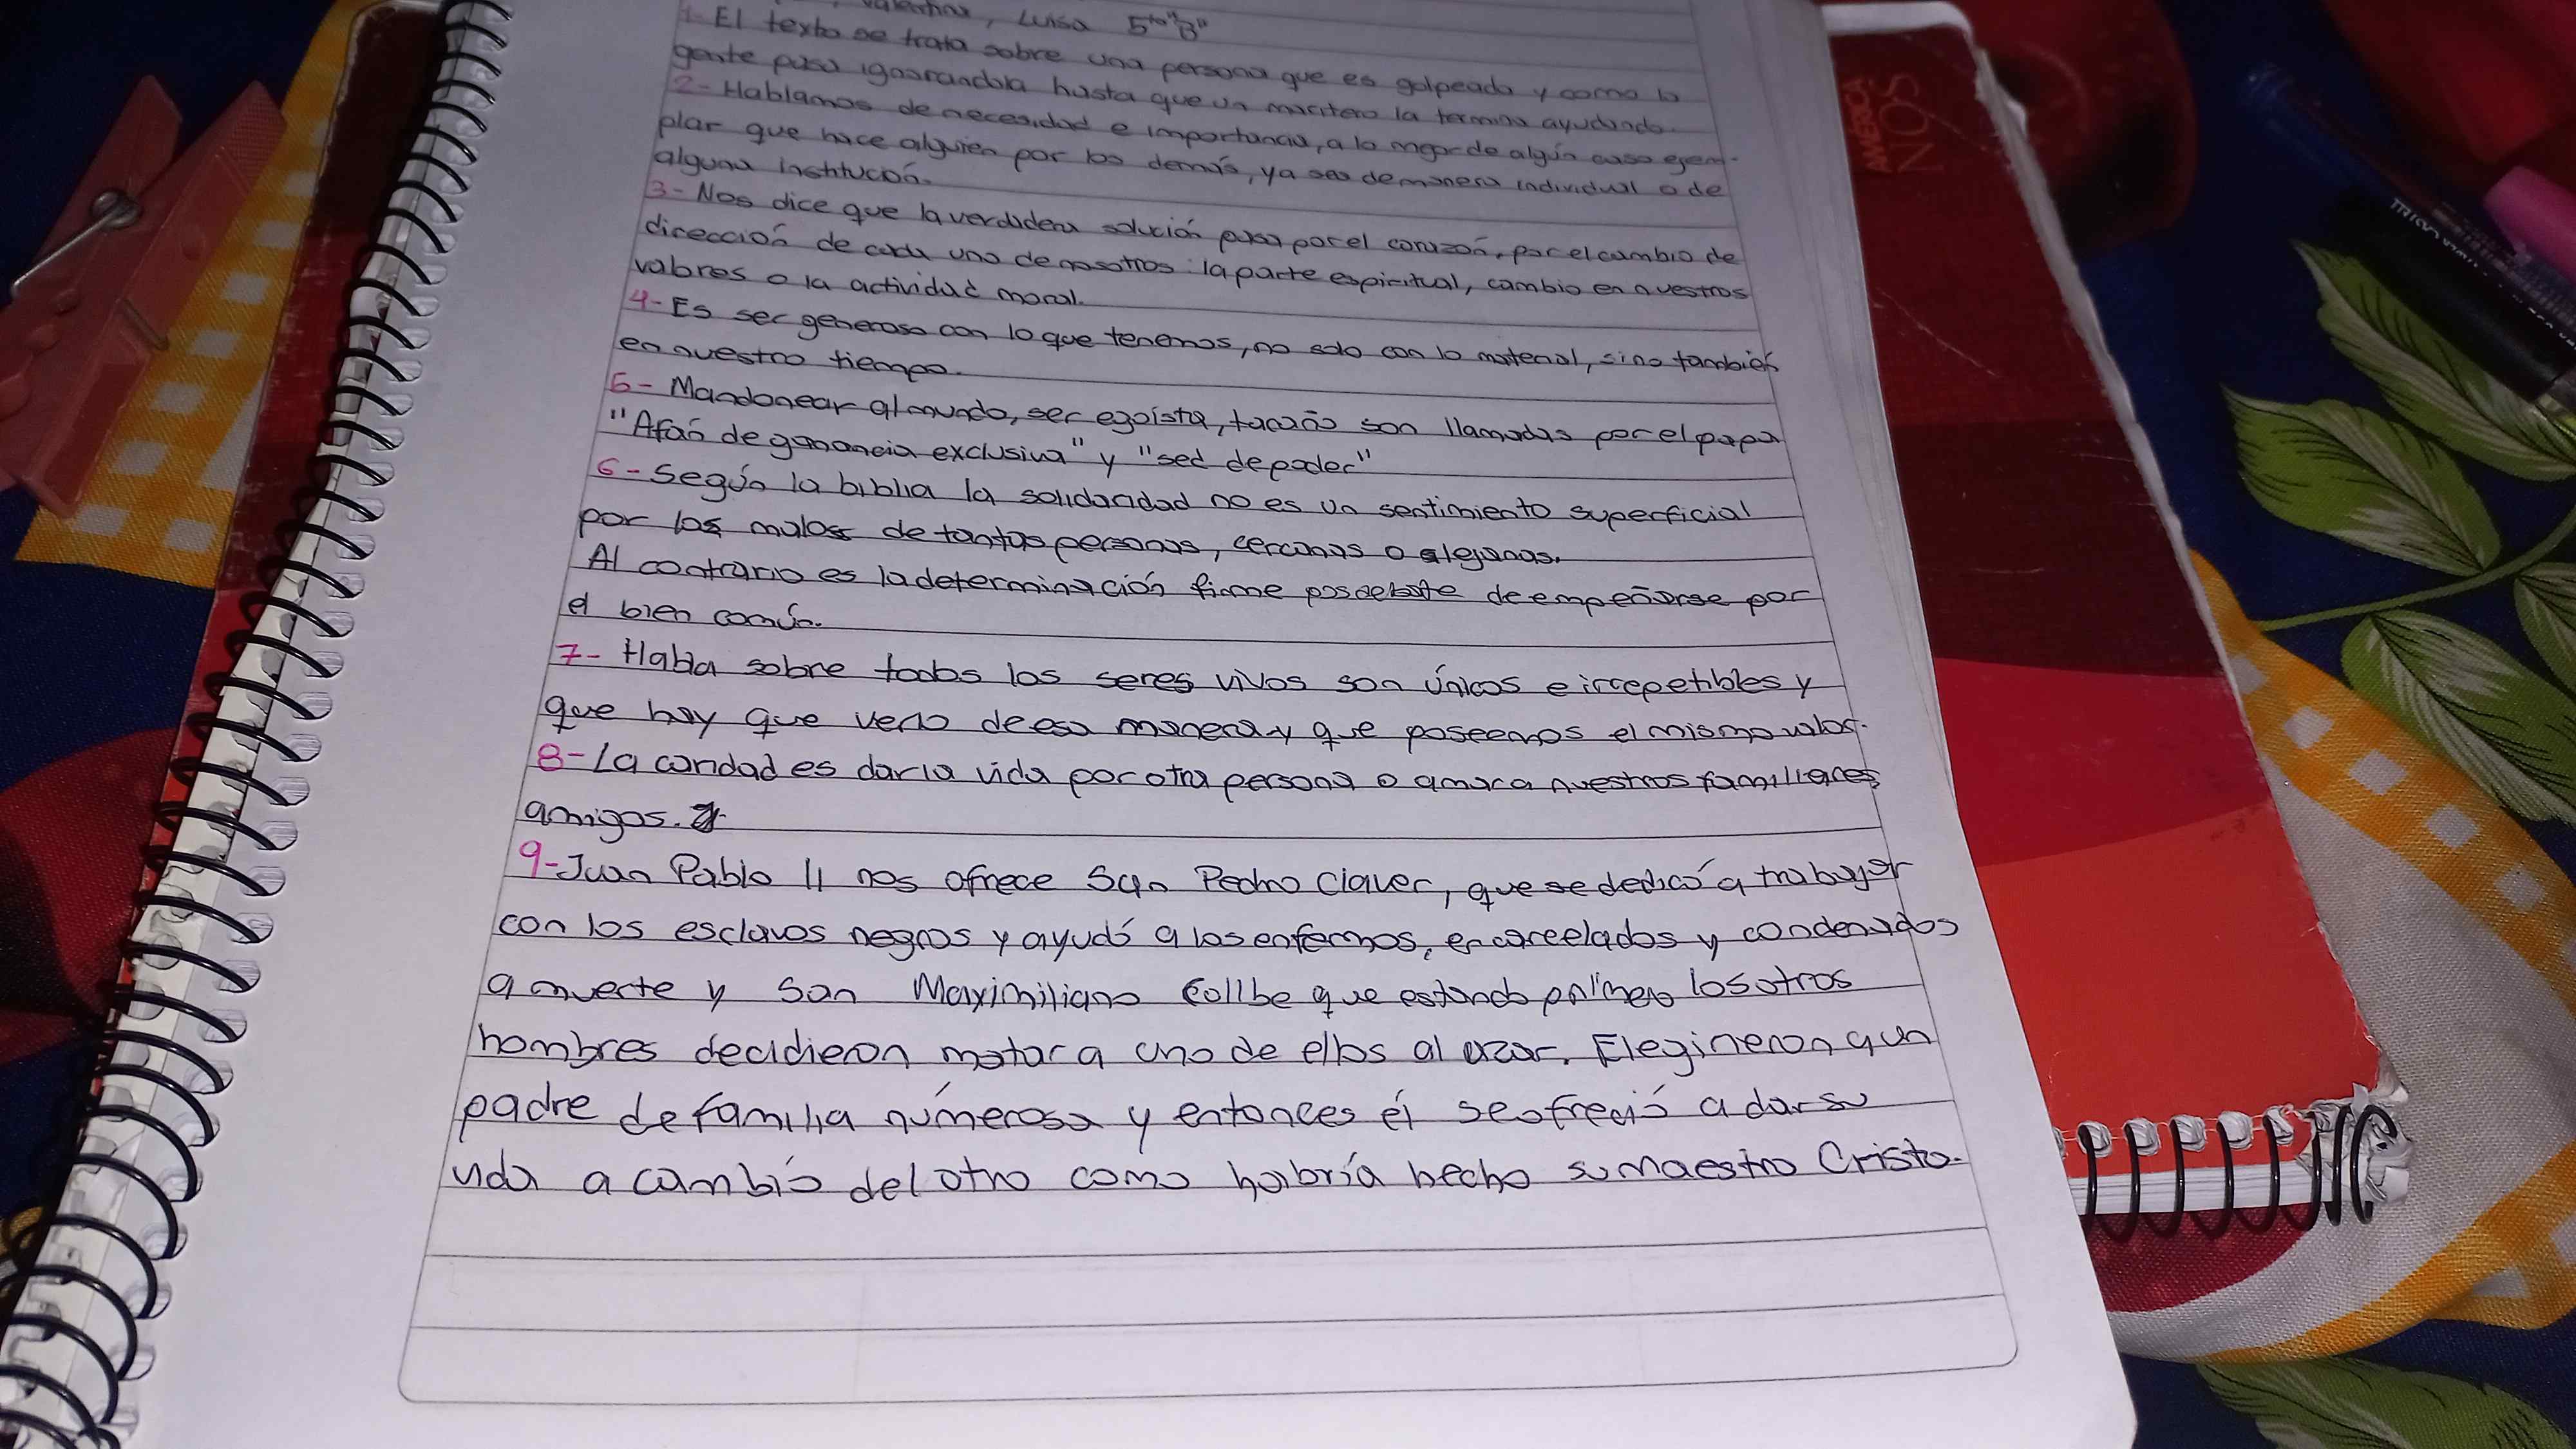 Valentina, Luisa 5to "B"
1- El texto se trata sobre una persona que es golpeada y como la
gente pasa ignorandola hasta que un macitero la termina ayudando.
2- Hablamos de necesidad e importancia, a lo mejor de algún caso ejem-
plar que hace alguien por los demás, ya sea de manera individual o de
alguna institución.
3- Nos dice que la verdadera solución pasa por el corazón, por el cambio de
dirección de cada uno de nosotros: la parte espiritual, cambio en nuestros
valores o la actividad moral.
4- Es ser generoso con lo que tenemos, no solo con lo material, sino también
en nuestro tiempo.
5- Mandonear al mundo, ser egoísta, tacaño son llamadas por el papa
"Afán de ganancia exclusiva" y "sed de poder"
6- Según la biblia la solidaridad no es un sentimiento superficial
por los males de tantas personas, cercanas o alejanas.
Al contrario es la determinación firme de empeñarse por
el bien común.
7- Habla sobre todos los seres vivos son únicos e irrepetibles y
que hay que verlo de esa manera y que poseemos el mismo valor.
8- La caridad es dar la vida por otra persona o amar a nuestros familiares
amigos.
9- Juan Pablo II nos ofrece San Pedro Claver, que se dedicó a trabajar
con los esclavos negros y ayudó a los enfermos, encarcelados y condenados
a muerte y San Maximiliano Collbe que estando los otros
hombres decidieron matar a uno de ellos al azar. Elegineron a un
padre de familia númerosa y entonces él se ofreció a dar su
vida a cambio del otro como habría hecho su Maestro Cristo.
AMÉRICA
NOS